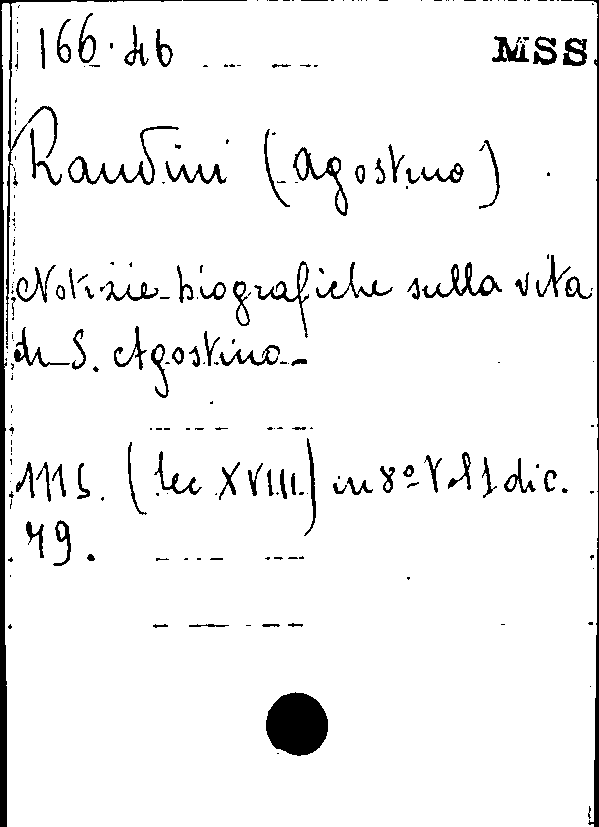 166.46 MSS.
Randini (Agostino).
Notizie biografiche sulla vita
di S. Agostino -
Ms. (Sec XVIII) in 8º Vol 1 di c.
49.